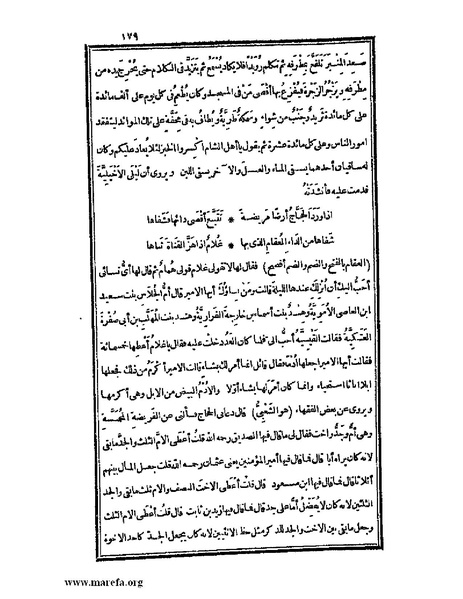 ١٧٩
صعد المنبر تلفع بمطرفه ثم تكلم رويدا فلا يكاد يسمع ثم يتزيد فى الكلام حتى يخرج يده من
مطرفه ويزجر الزجرة فيفزع بها أقصى من فى المسجد وكان يطعم فى كل يوم على ألف مائدة
على كل مائدة ثريد وجنب من شواء وسمكة طرية ويطاف به فى محفة على تلك الموائد ليتفقد
امور الناس وعلى كل مائدة عشرة ثم يقول يا أهل الشام اكسروا الخبز لئلا يعاد عليكم وكان
له ساقيان أحدهما يسقى الماء والعسل والآخر يسقى اللبن ويروى أن ليلى الاخيلية
قدمت عليه فأنشدته
اذا ورد الحجاج أرضا مريضة * تتبع أقصى دائها فشفاها
شفاها من الداء العقام الذى بها * غلام اذا هز القناة ثناها
(العقام بالفتح والضم والضم أفصح) فقال لها لا تقولى غلام قولى همام ثم قال لها أى نسائى
أحب اليك أن أنزلك عندها الليلة قالت ومن نساؤك أيها الامير قال أم الجلاس بنت سعيد
ابن العاصى الأموية وهند بنت أسماء بن خارجة الفزارية وهند بنت المهلب بن أبى صفرة
العتكية فقالت القيسية أحب الى فلما كان الغد دخلت عليه فقال يا غلام أعطها خمسمائة
فقالت أيها الامير اجعلها أدما فقال قائل انما أمر لك بشاء قالت الامير أكرم من ذلك فجعلها
ابلا اناثا استحياء وانما كان أمر لها بشاء أولا والادم البيض من الابل وهى أكرمها
ويروى عن بعض الفقهاء (هو الشعبى) قال دعانى الحجاج فسألنى عن الفريضة المخمسة
وهى أم وجد واخت فقال لى ما قال فيها الصديق رحمه الله قلت أعطى الام الثلث والجد ما بقى
لانه كان يراه أبا قال فما قال فيها أمير المؤمنين يعنى عثمان رحمه الله قلت جعل المال بينهم
أثلاثا قال فما قال فيها ابن مسعود قال قلت أعطى الاخت النصف والام ثلث ما بقى والجد
الثلثين لانه كان لا يفضل أما على جد قال فما قال فيها زيد بن ثابت قال قلت أعطى الام الثلث
وجعل ما بقى بين الاخت والجد للذكر مثل حظ الانثيين لانه كان يجعل الجد كأحد الاخوة
www.marefa.org